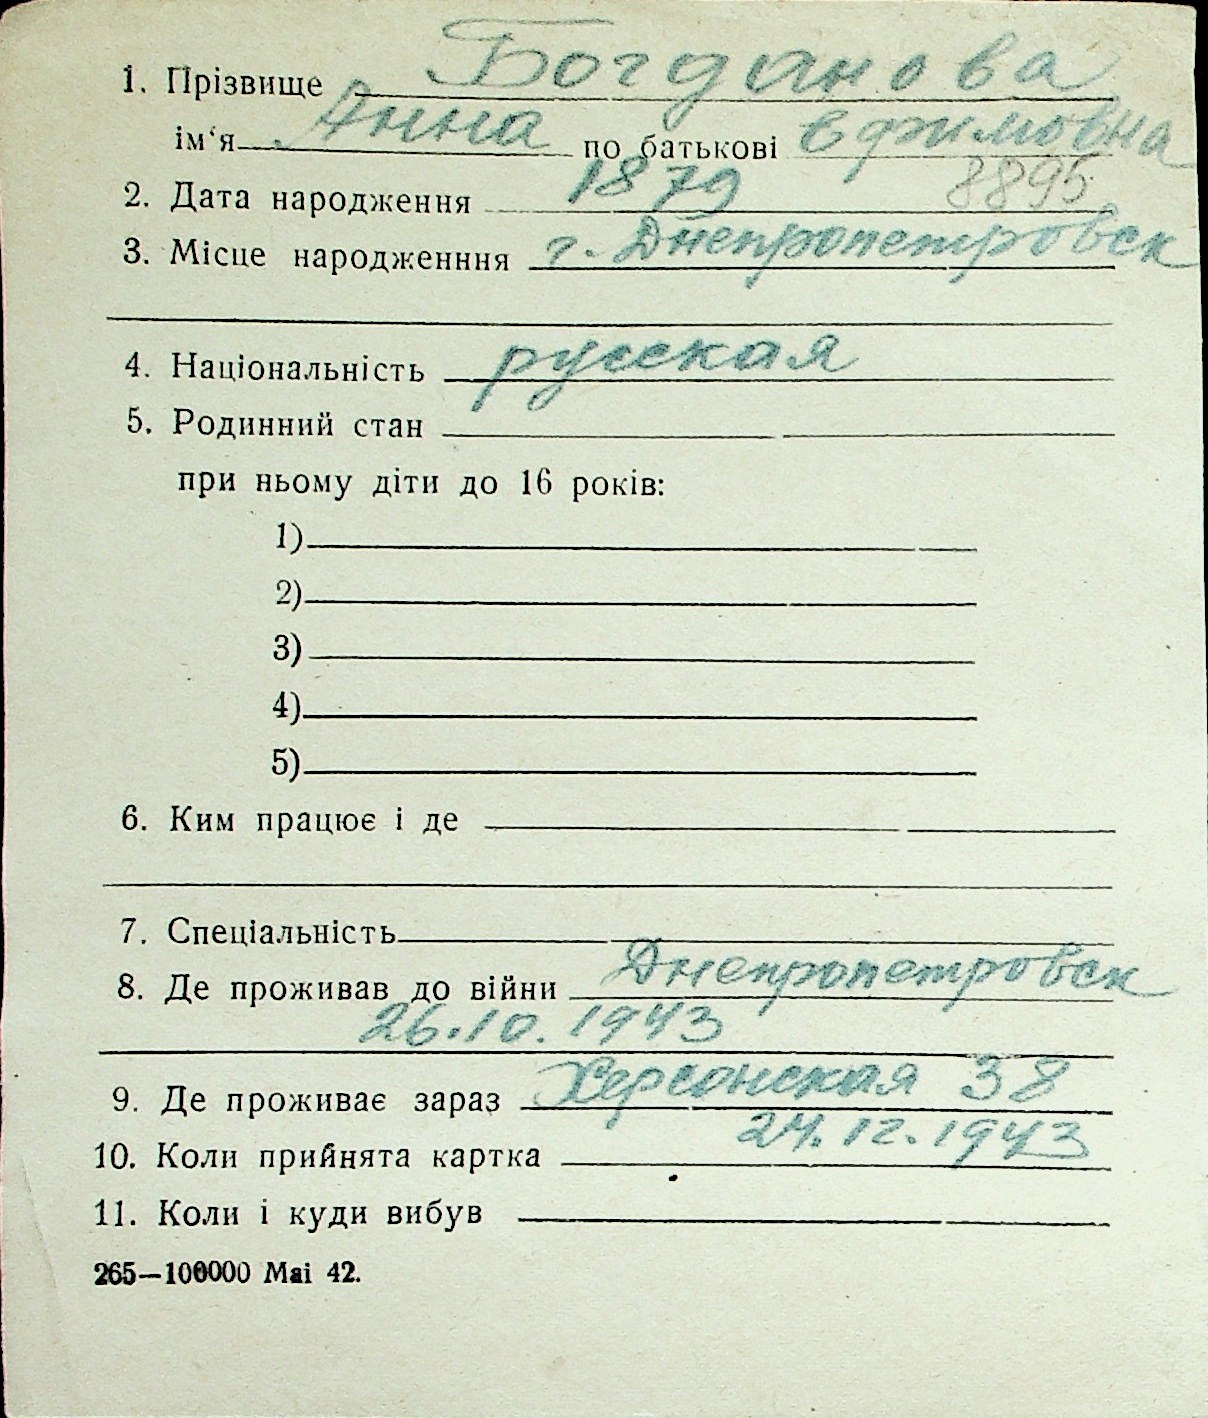 1. Прізвище Богданова
ім‘я Анна по батькові Ефимовна
2. Дата народження 1879 8895
3. Місце народженння г. Днепропетровск
4. Національність русская
5. Родинний стан
при ньому діти до 16 років:
1)
2)
3)
4)
5)
6. Ким працює і де
7. Спеціальність
8. Де проживав до війни Днепропетровск
26.10.1943
9. Де проживає зараз Херсонская 38
10. Коли прийнята картка 24.12.1943
11. Коли і куди вибув
265—100000 Mai 42.